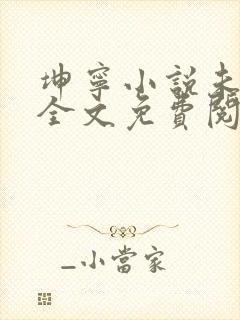 坤寧小說未
全文免費閱
_小當家